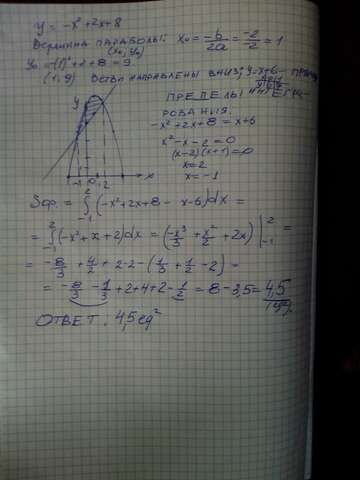 y = -x² + 2x + 8
Вершина параболы: x₀ = -b/2a = -2/-2 = 1
(x₀, y₀)
y₀ = -(1)² + 2 + 8 = 9
(1, 9) Ветви направлены вниз; y = x+6 -
Пределы интегрирования.
-x² + 2x + 8 = x + 6
x² - x - 2 = 0
(x-2)(x+1) = 0
x = 2
x = -1
y
-1 0 1 2 x
Sфр. = ∫₋₁² (-x² + 2x + 8 - x - 6) dx =
= ∫₋₁² (-x² + x + 2) dx = (-x³/3 + x²/2 + 2x) |₋₁² =
= -8/3 + 4/2 + 2·2 - (1/3 + 1/2 - 2) =
= -8/3 - 1/3 + 2 + 4 + 2 - 1/2 = 8 - 3,5 = 4,5
Ответ: 4,5 ед²